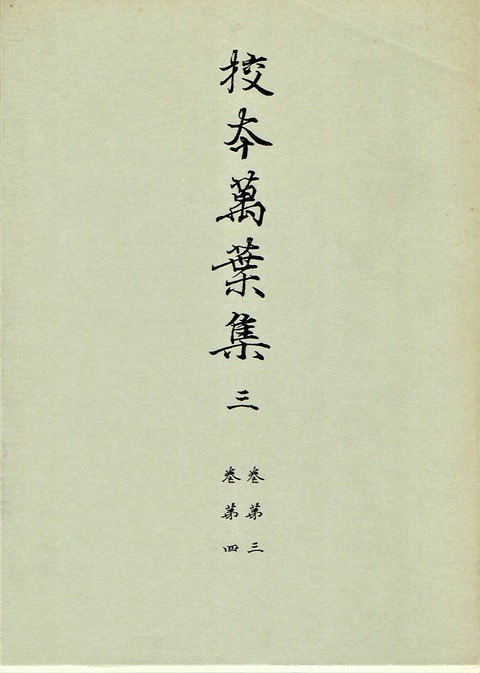 校本萬葉集 三
巻第三
巻第四